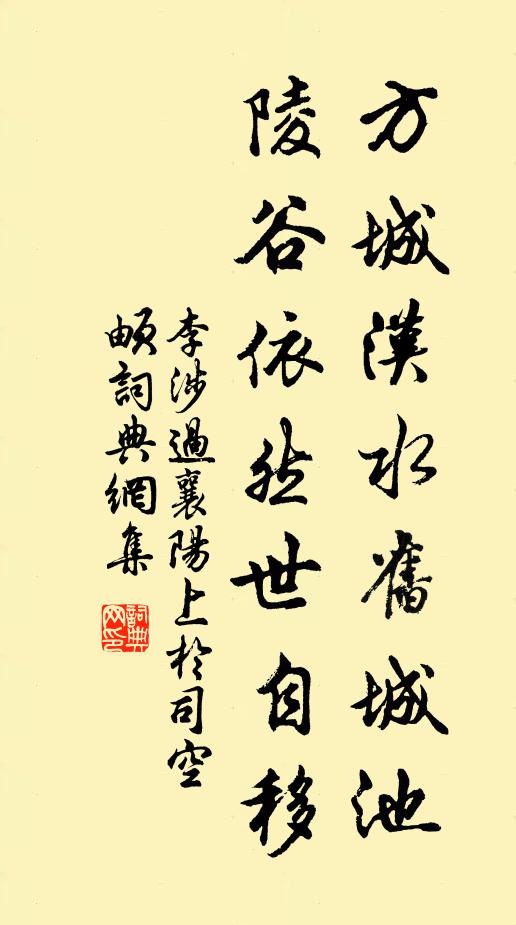 方城漢水舊城池
陵谷依然世自移
李涉過襄陽上於司空
頔詞典網集
詞典網印